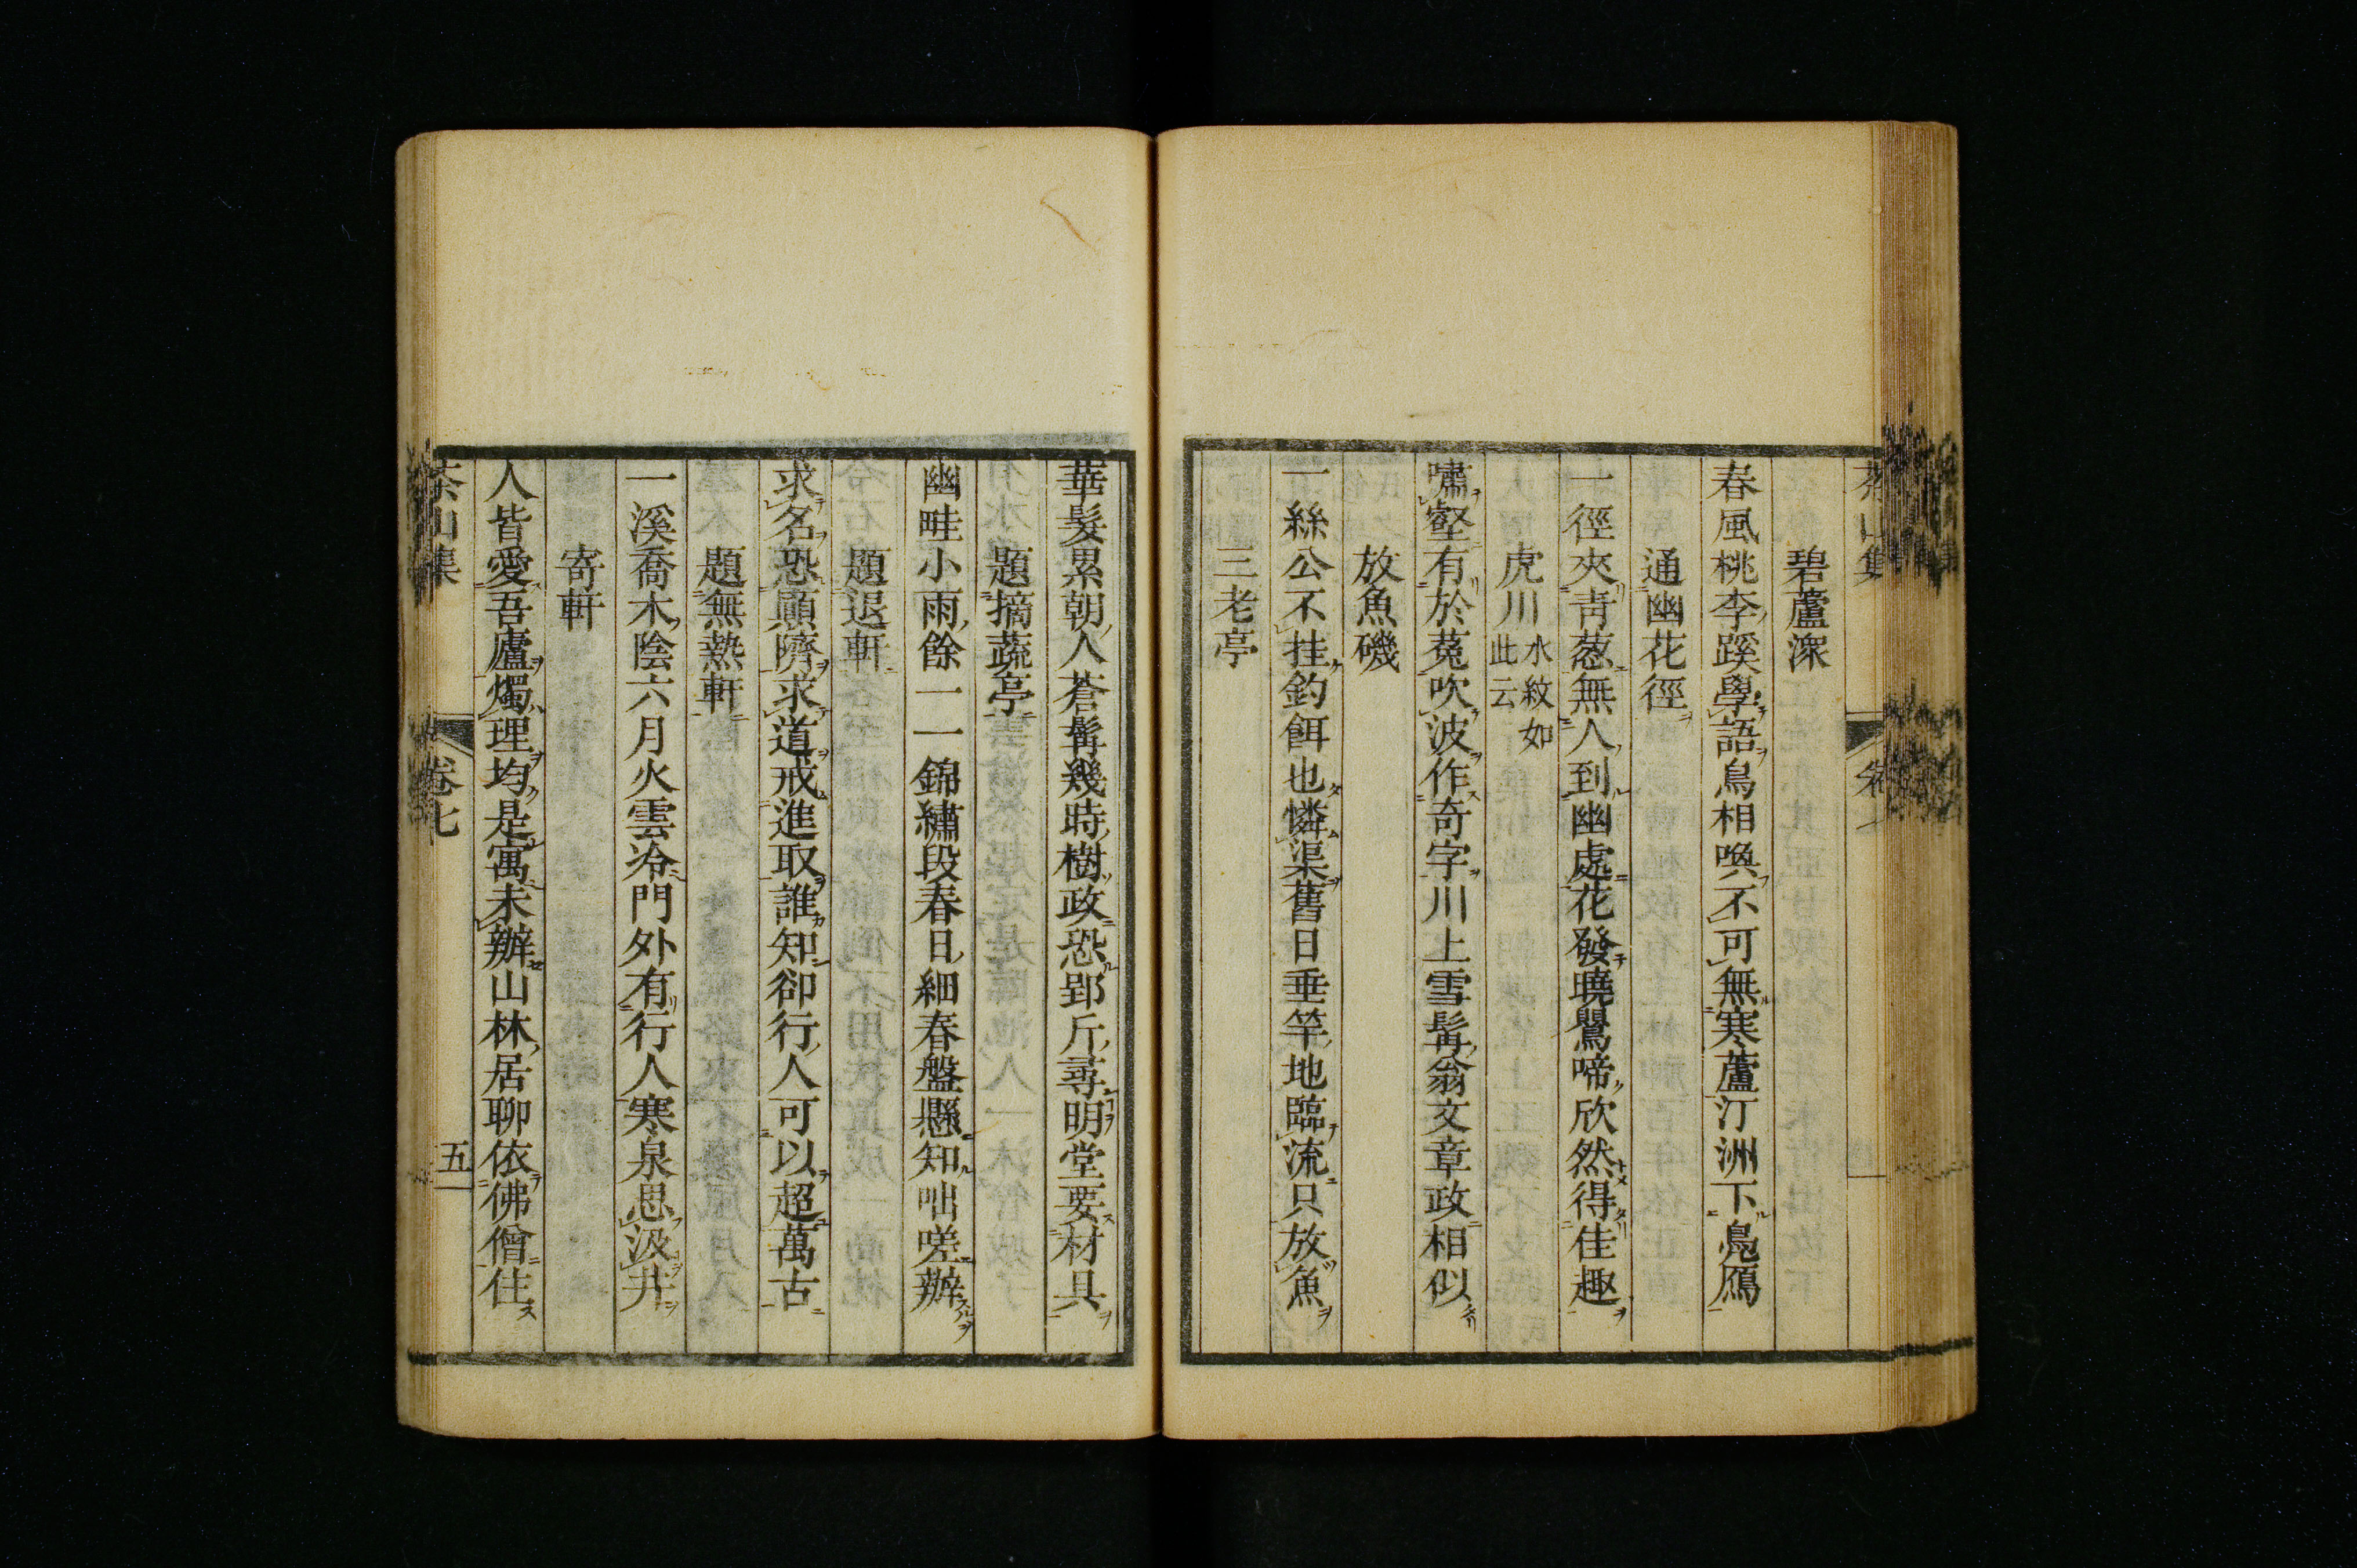 碧蘆深
春風桃李蹊學語鳥相喚不可無寒蘆汀洲下鳧鴈
通幽花徑
一徑夾靑葱無人到幽處花發曉鸎啼欣然得佳趣
虎川水紋如此云
嘯壑有於菟吹波作奇字川上雪髯翁文章政相似
放魚磯
一絲公不挂釣餌也憐渠舊日垂竿地臨流只放魚
三老亭
華髮累朝人蒼髯幾時樹政恐郢斤尋明堂要材具
題摘蔬亭
幽畦小雨餘一一錦繡段春日細春盤懸知咄嗟辦
題退軒
求名恐顚隮求道戒進取誰知卻行人可以超萬古
題無熱軒
一溪喬木陰六月火雲冷門外有行人寒泉思汲井
寄軒
人皆愛吾廬燭理均是寓未辦山林居聊依佛僧住
茶山集 卷七 五